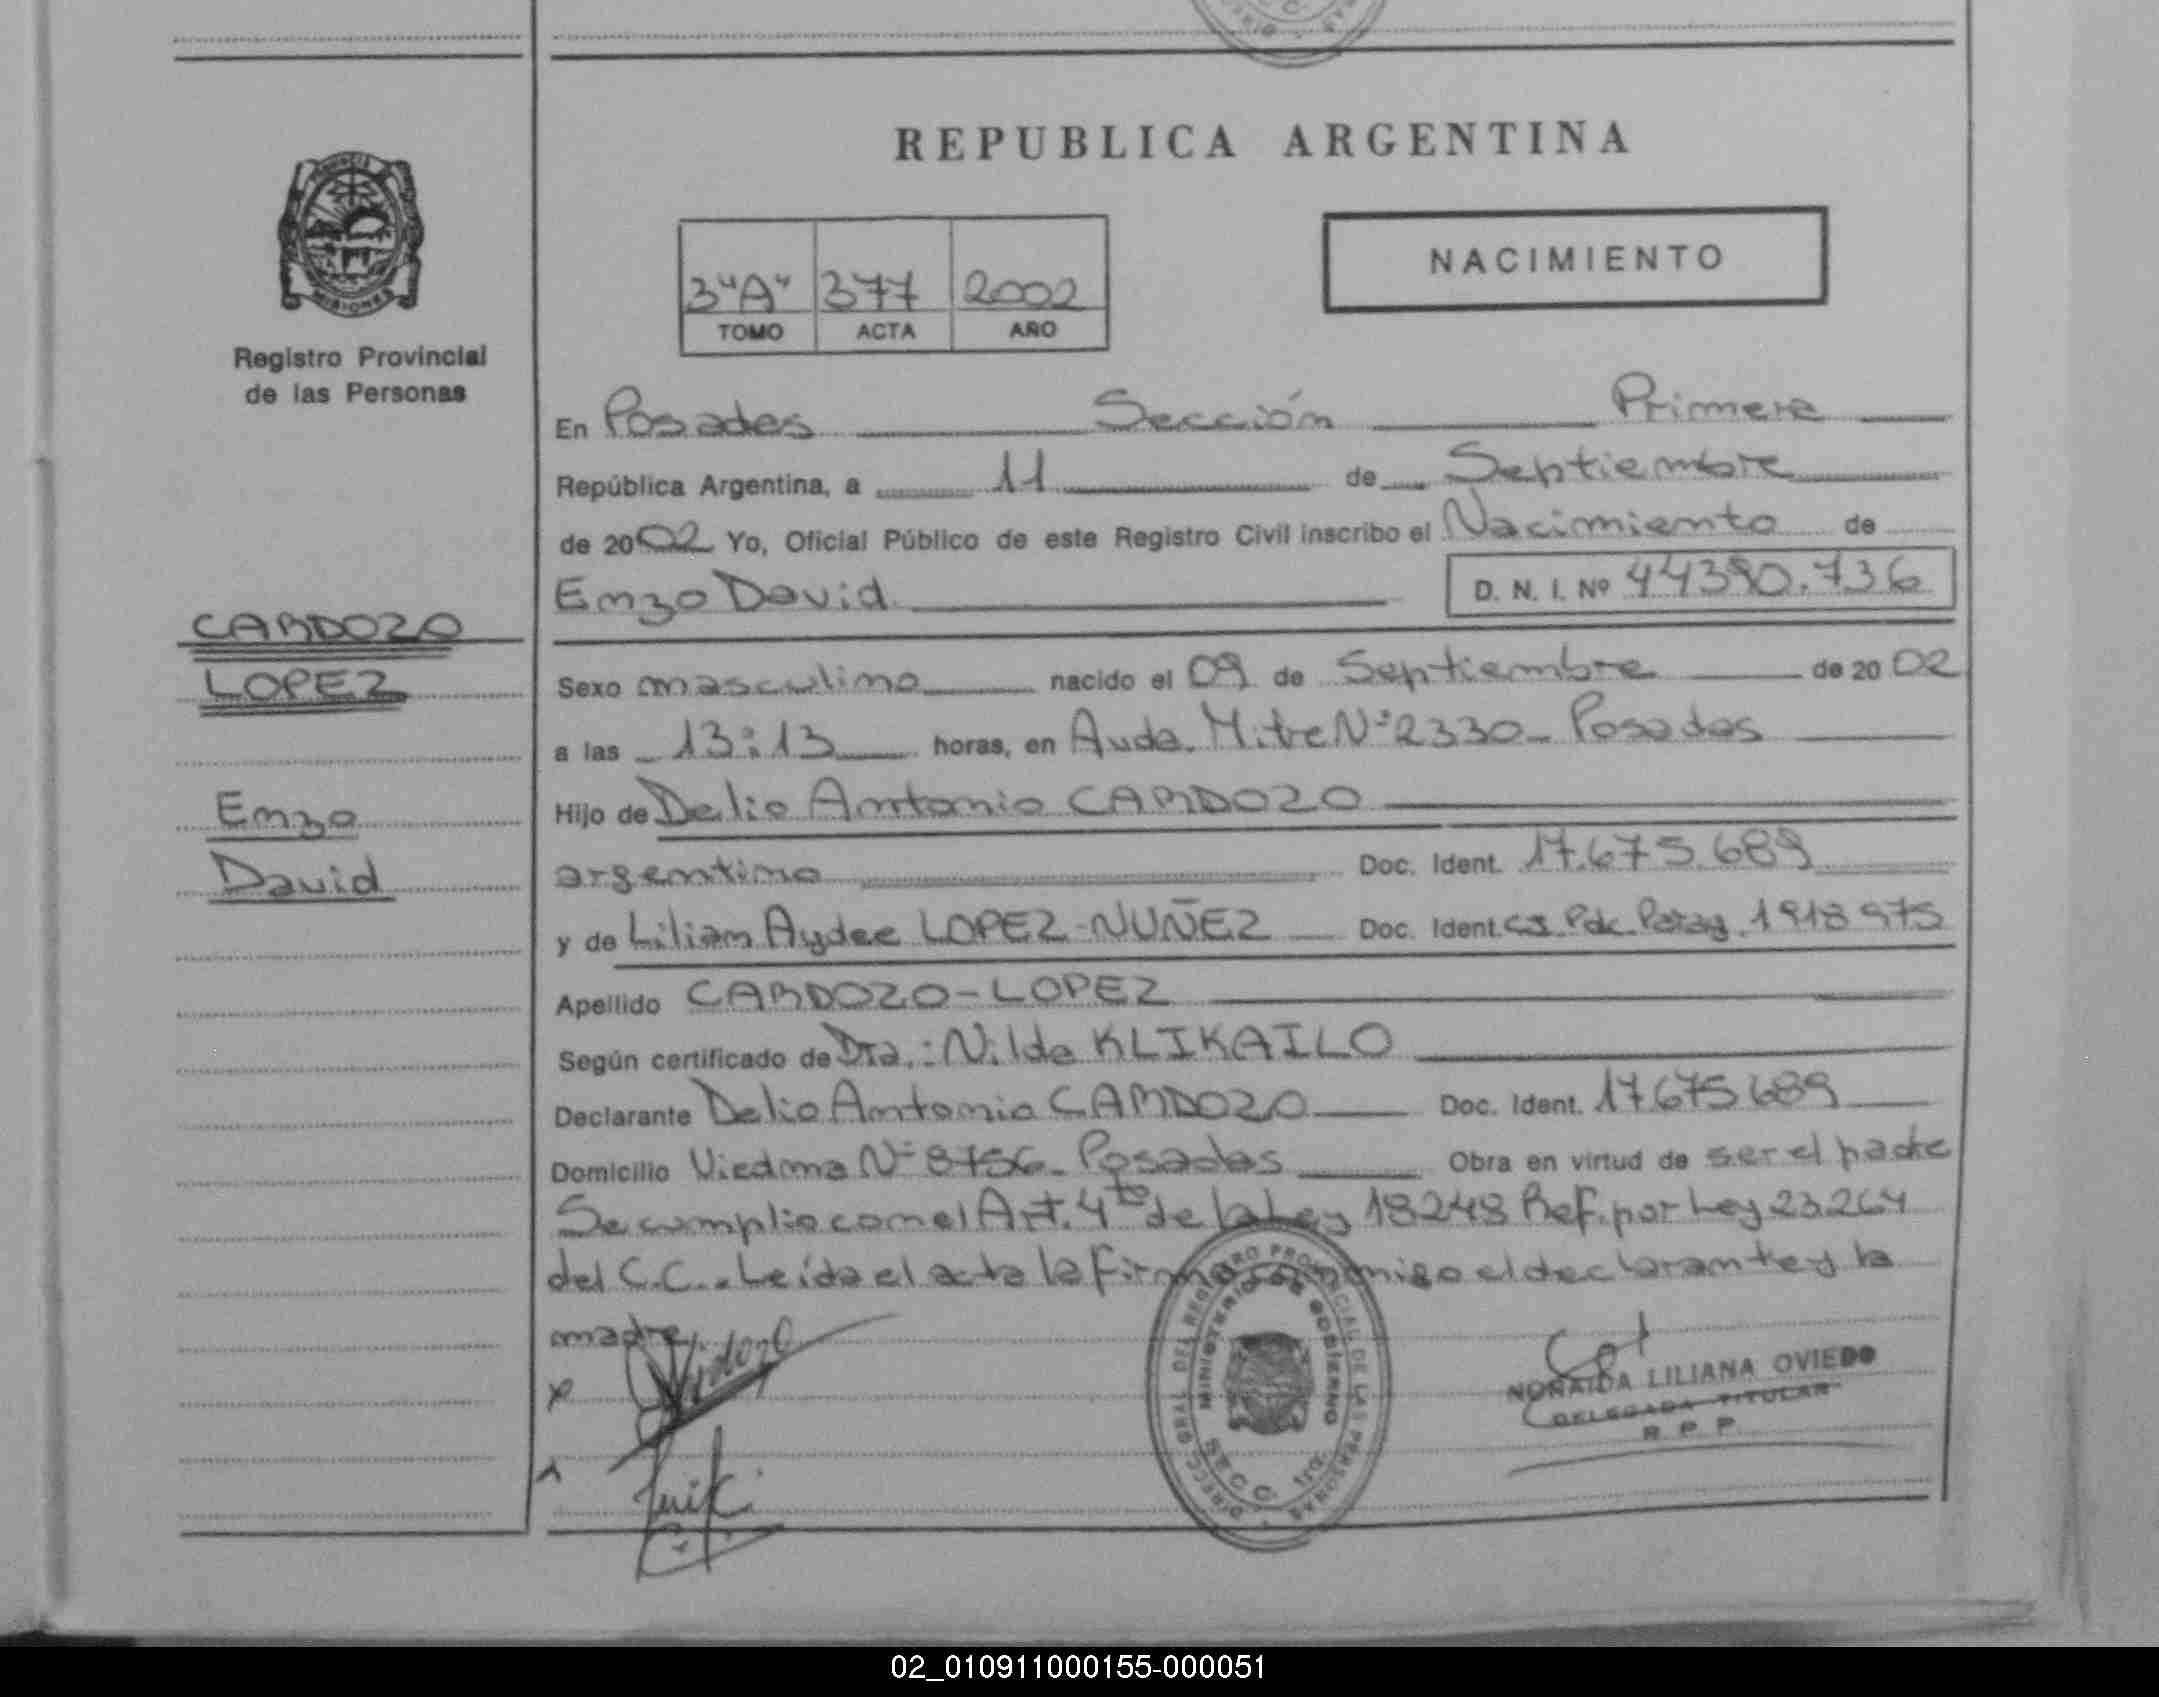 REPUBLICA ARGENTINA
NACIMIENTO
3"A" 377 2002
TOMO ACTA AÑO
PROVINCIA
MISIONES
Registro Provincial
de las Personas
CARDOZO
LOPEZ
Enzo
David
En Posadas Sección Primera
República Argentina, a 11 de Septiembre
de 2002 Yo, Oficial Público de este Registro Civil inscribo el Nacimiento de
Enzo David D. N. I. Nº 44390.736
Sexo masculino nacido el 09 de Septiembre de 20 02
a las 13:13 horas, en Avda. Mitre Nº 2330 - Posadas
Hijo de Delio Antonio CARDOZO
argentino Doc. Ident. 17.675.689
y de Lilian Aydee LOPEZ-NUÑEZ Doc. Ident. Parag. 1918975
Apellido CARDOZO-LOPEZ
Según certificado de Dra.: Nilda KLIKAILO
Declarante Delio Antonio CARDOZO Doc. Ident. 17.675.689
Domicilio Viedma Nº 8756 - Posadas Obra en virtud de ser el padre
Se cumplio con el Art. 4to de la Ley 18248 Ref. por Ley 23.264
del C.C.. Leída el acta la firma conmigo el declarante y la
madre
x
DIRECC. GRAL. DEL REGISTRO PROVINCIAL DE LAS PERSONAS
MINISTERIO DE GOBIERNO
SECC. 1ra.
NORAIDA LILIANA OVIEDO
DELEGADA TITULAR
R. P. P.
02_010911000155-000051